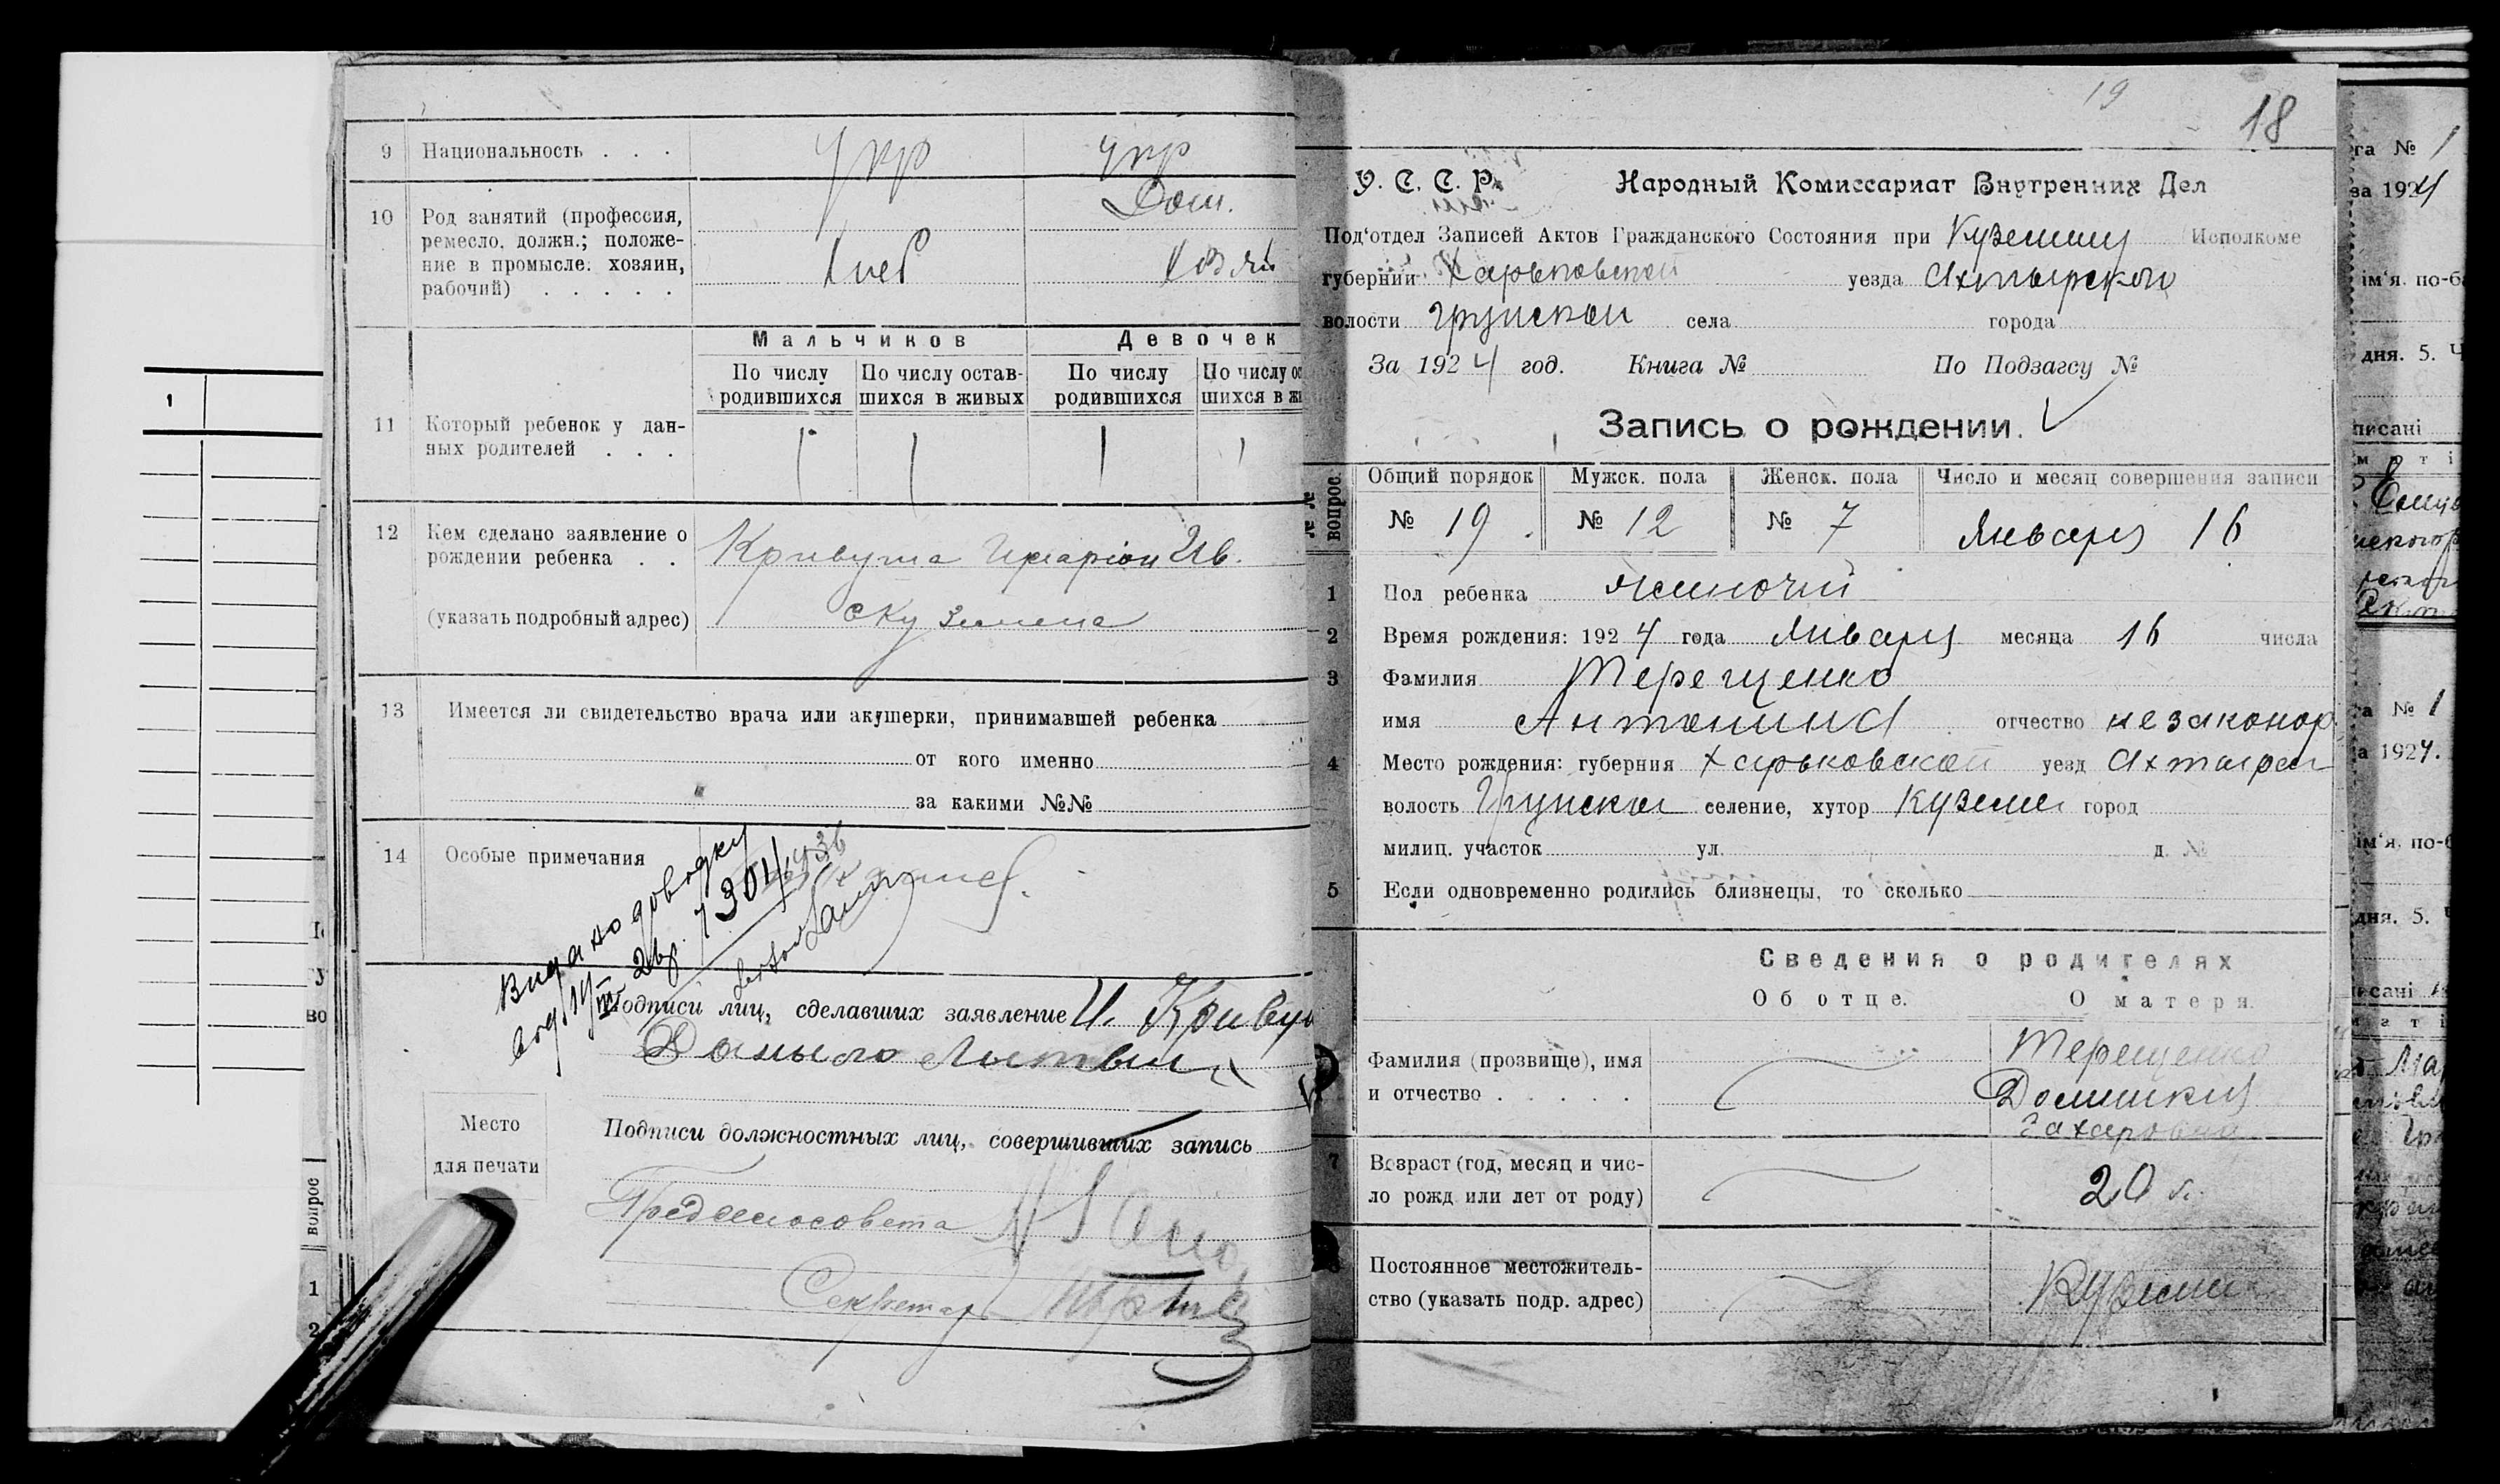 1
9 Национальность . . . укр укр
10 Род занятий (профессия, Дом.
ремесло, должн.; положе-
ние в промысле: хозяин, хлеб хозяй
рабочий) . . . . .
Мальчиков Девочек
По числу По числу остав- По числу По числу ос
родившихся шихся в живых родившихся шихся в жи
11 Который ребенок у дан- 1 1 1 1
ных родителей . . .
12 Кем сделано заявление о
рождении ребенка . . Кривуша Иларіон Ив.
(указать подробный адрес) с Куземена
13 Имеется ли свидетельство врача или акушерки, принимавшей ребенка
от кого именно
за какими №№
14 Особые примечания
Видано доводку
7301
Подписи лиц, сделавших заявление И. Кривуш
Даныло Литвин
Место
для печати
Подписи должностных лиц, совершивших запись
Предсельсовета
Секретарь
вопрос
1
2
19
18
У. С. С. Р. Народный Комиссариат Внутренних Дел
Под'отдел Записей Актов Гражданского Состояния при Куземину Исполкоме
губернии Харьковской уезда Ахтырского
волости Грунской села города
За 1924 год. Книга № По Подзагсу №
Запись о рождении.
№№ вопрос.
Общий порядок Мужск. пола Женск. пола Число и месяц совершения записи
№ 19 № 12 № 7 Января 16
1 Пол ребенка жиночий
2 Время рождения: 1924 года Января месяца 16 числа
3 Фамилия Терещенко
имя Антонина отчество незаконор
4 Место рождения: губерния Харьковской уезд Ахтырск
волость Грунской селение, хутор Куземен город
милиц. участок ул. д. №
5 Если одновременно родились близнецы, то сколько
Сведения о родителях
Об отце. О матери.
Фамилия (прозвище), имя Терещенко
и отчество . . . . . Домникия
Захаровна
7 Возраст (год, месяц и чис-
ло рожд или лет от роду) 20 л.
Постоянное местожитель-
ство (указать подр. адрес) Куземин
га № 1
за 1924
ім'я. по-б
дня. 5. Ч
писані
№ 1
1924.
ім'я. по-б
дня. 5. Ч